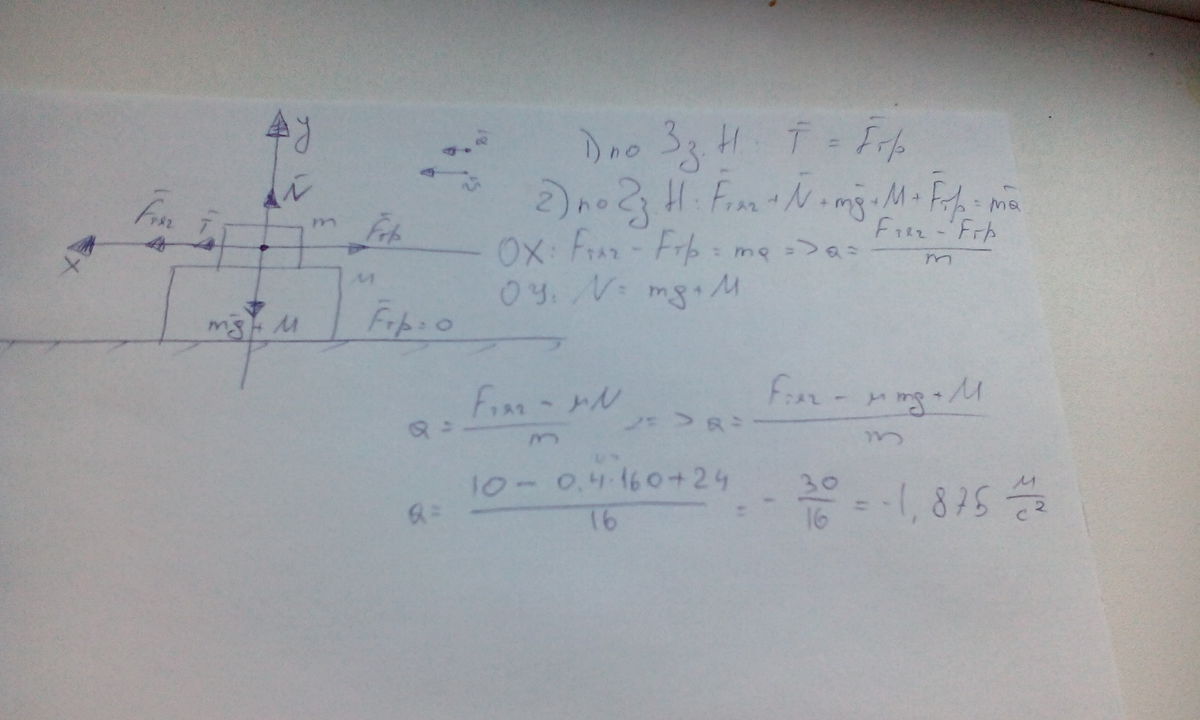 y
N̄
F̄тяг
T̄
m
F̄тр
X
M
m̄g + M
F̄тр = 0
ā
v̄
1) по 3 з. Н: T̄ = F̄тр
2) по 2 з. Н: F̄тяг + N̄ + m̄g + M + F̄тр = mā
OX: Fтяг - Fтр = ma => a = (Fтяг - Fтр)/m
OY: N = mg + M
a = (Fтяг - μN)/m => a = (Fтяг - μmg + M)/m
a = (10 - 0,4·160 + 24)/16 = - 30/16 = -1,875 м/с²